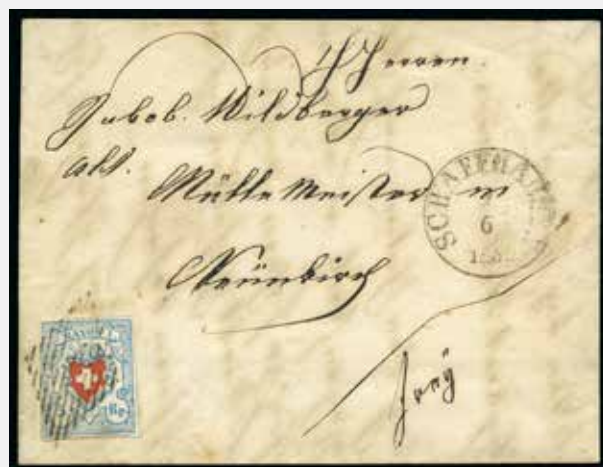 Herren
Jakob. Wildberger
alt.
Müller Meister in
Neünkirch
SCHAFFHAUSEN
6
RAYON I
Rp